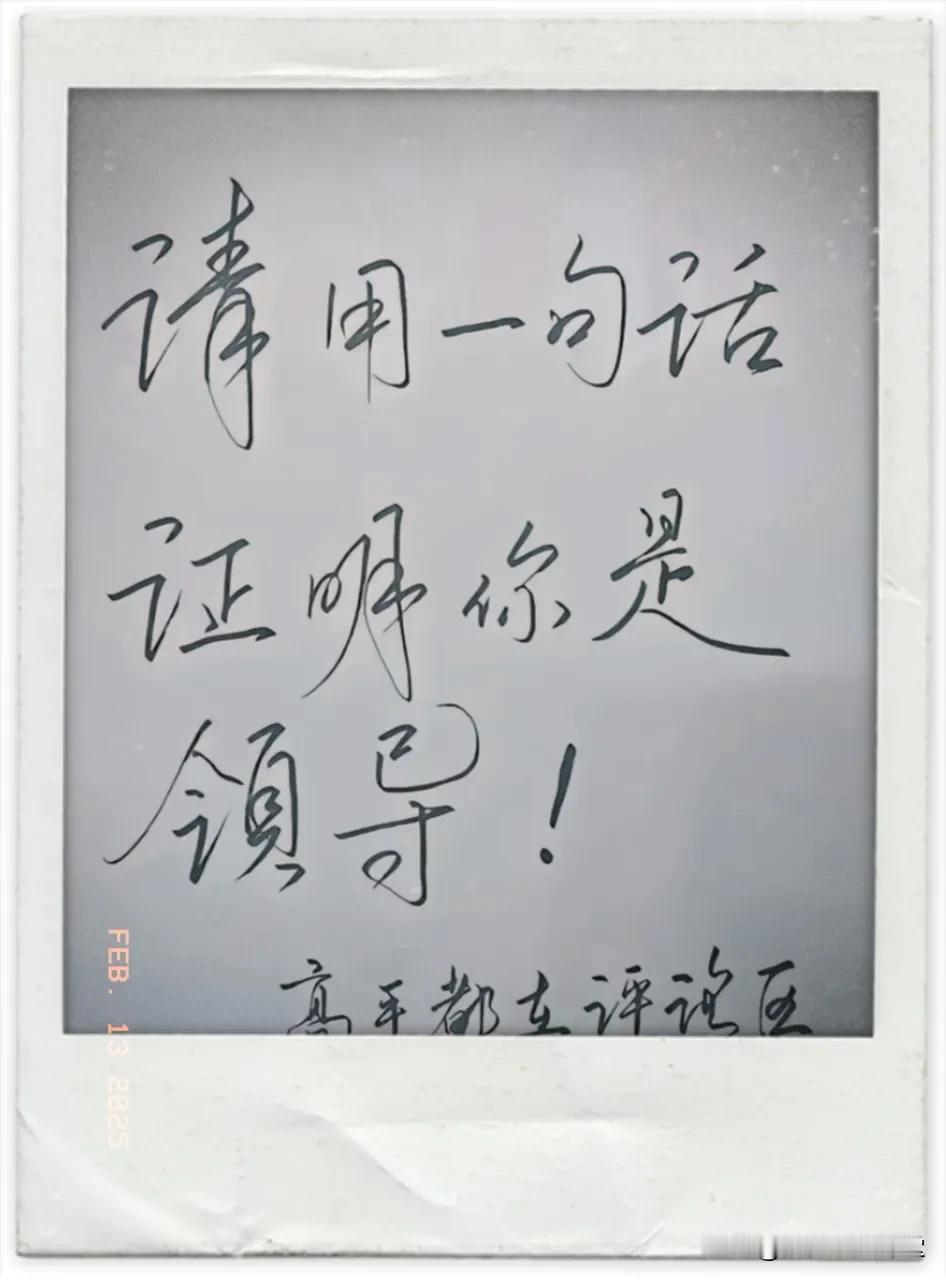 请用一句话
证明你是
领导!
高手都在评论区
FEB. 13 2025